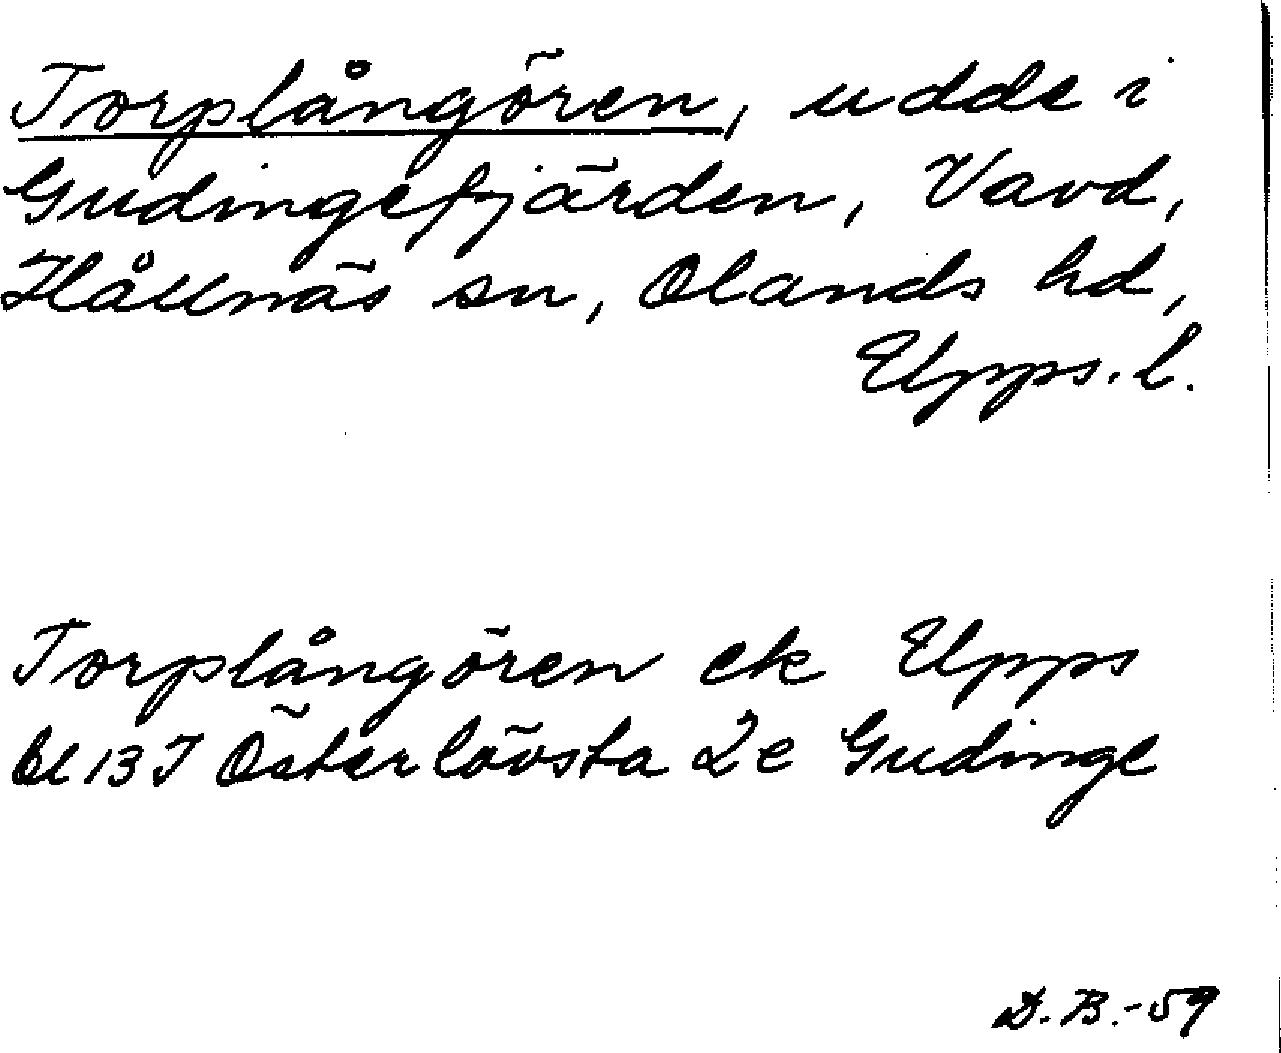 Torplångören, udde i
Gudingefjärden, Vavd,
Hållnäs sn, Olands hd,
Upps. l.
Torplångören ek Upps
bl 13 J Österlövsta 2e Gudinge
D. B. -59